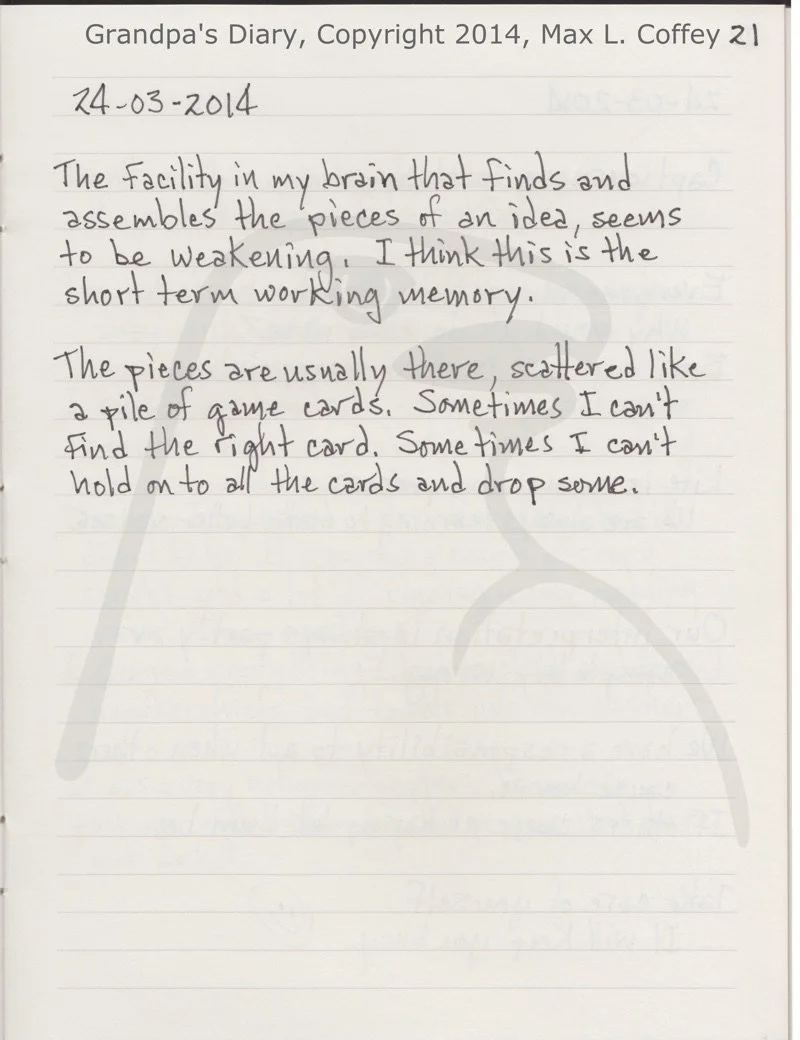 Grandpa's Diary, Copyright 2014, Max L. Coffey 21
24-03-2014
The facility in my brain that finds and
assembles the pieces of an idea, seems
to be weakening. I think this is the
short term working memory.
The pieces are usually there, scattered like
a pile of game cards. Sometimes I can't
find the right card. Sometimes I can't
hold on to all the cards and drop some.